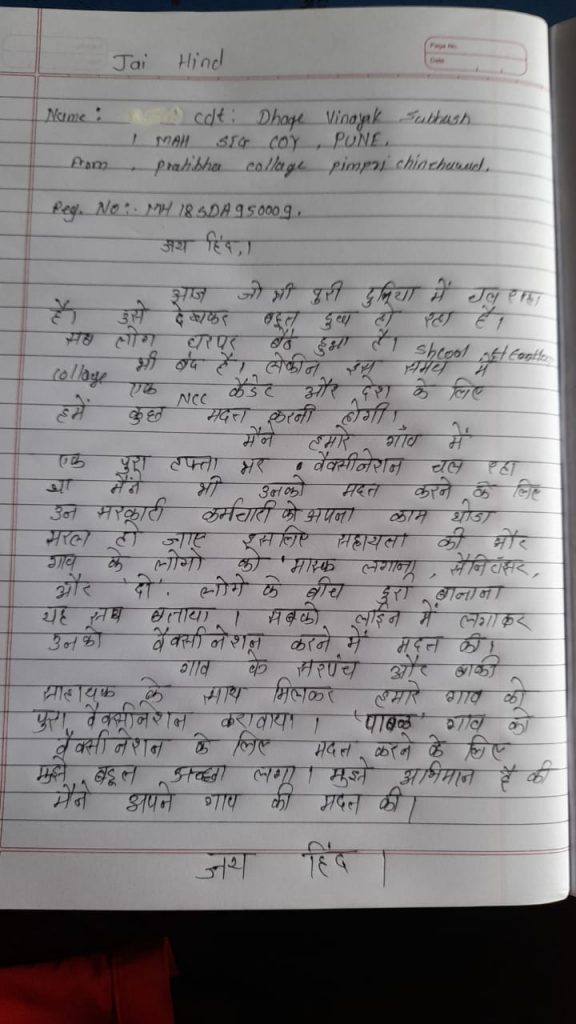 Jai Hind
Page No.
Date
Name: cdt: Dhage Vinayak Subhash
1 MAH SIG COY, PUNE.
From, pratibha collage pimpri chinchwad.
Reg. No:- MH18SDA950009.
जय हिंद,।
आज जो भी पुरी दुनिया में चल रहा
है। उसे देखकर बहुत दुख हो रहा है।
सब लोग घरपर बैठे हुआ है। shcool
collage भी बंद है। लेकीन इस समय में
एक NCC कॅडेट और देश के लिए
हमें कुछ मदत करनी होगी।
मैंने हमारे गाँव में
एक पुरा हफ्ता भर वैक्सीनेशन चल रहा
था मैंने भी उनको मदत करने के लिए
उन सरकारी कर्मचारी को अपना काम थोडा
सरल हो जाए इसलिए सहायता की और
गाव के लोगो को 'मास्क लगाना, सैनिटाॅसर,
और 'दो'. लोगो के बीच दुरा बानाना
यह सब बताया। सबको लाईन में लगाकर
उनको वैक्सीनेशन करने में मदत की।
गाव के सरपंच और बाकी
साहायक के साथ मिलकर हमारे गाव को
पुरा वैक्सीनेशन करावाया। 'पाबळ' गाव को
वैक्सीनेशन के लिए मदत करने के लिए
मुझे बहूत अच्छा लगा। मुझे अभिमान है की
मैंने अपने गाव की मदत की।
जय हिंद।